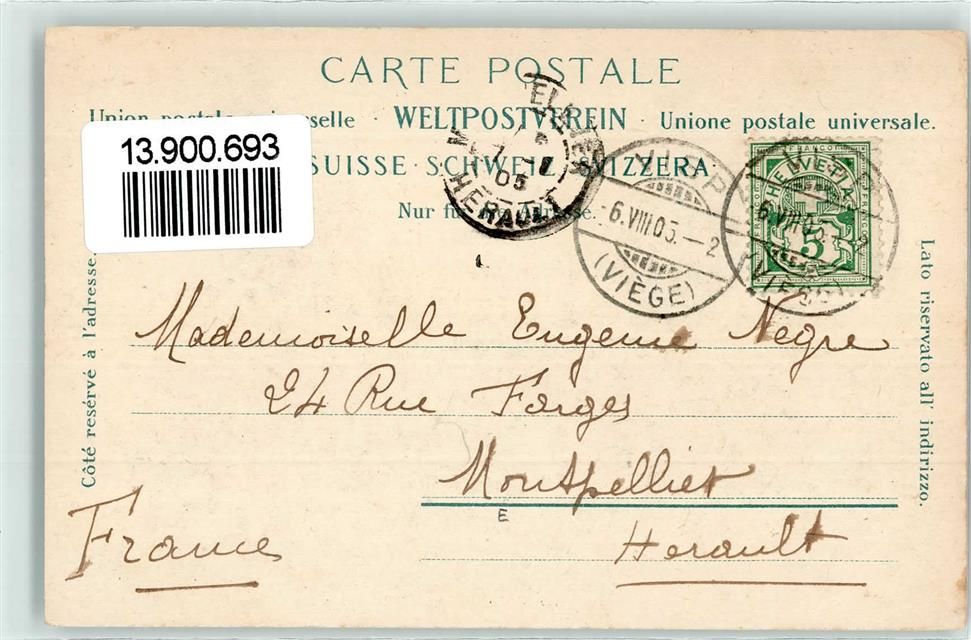 CARTE POSTALE
Union postale universelle · WELTPOSTVEREIN · Unione postale universale.
13.900.693
SUISSE · SCHWEIZ · SVIZZERA
Nur für die Adresse.
HÉRAULT
05
-6.VIII.05.-2
(VIÈGE)
FRANCO
HELVETIA
5
6.VIII05.-2
(VIÈGE)
Côté resérvé à l'adresse.
Lato riservato all' indirizzo.
Mademoiselle Eugenie Negre
24 Rue Farges
Montpellier
E
Herault
France